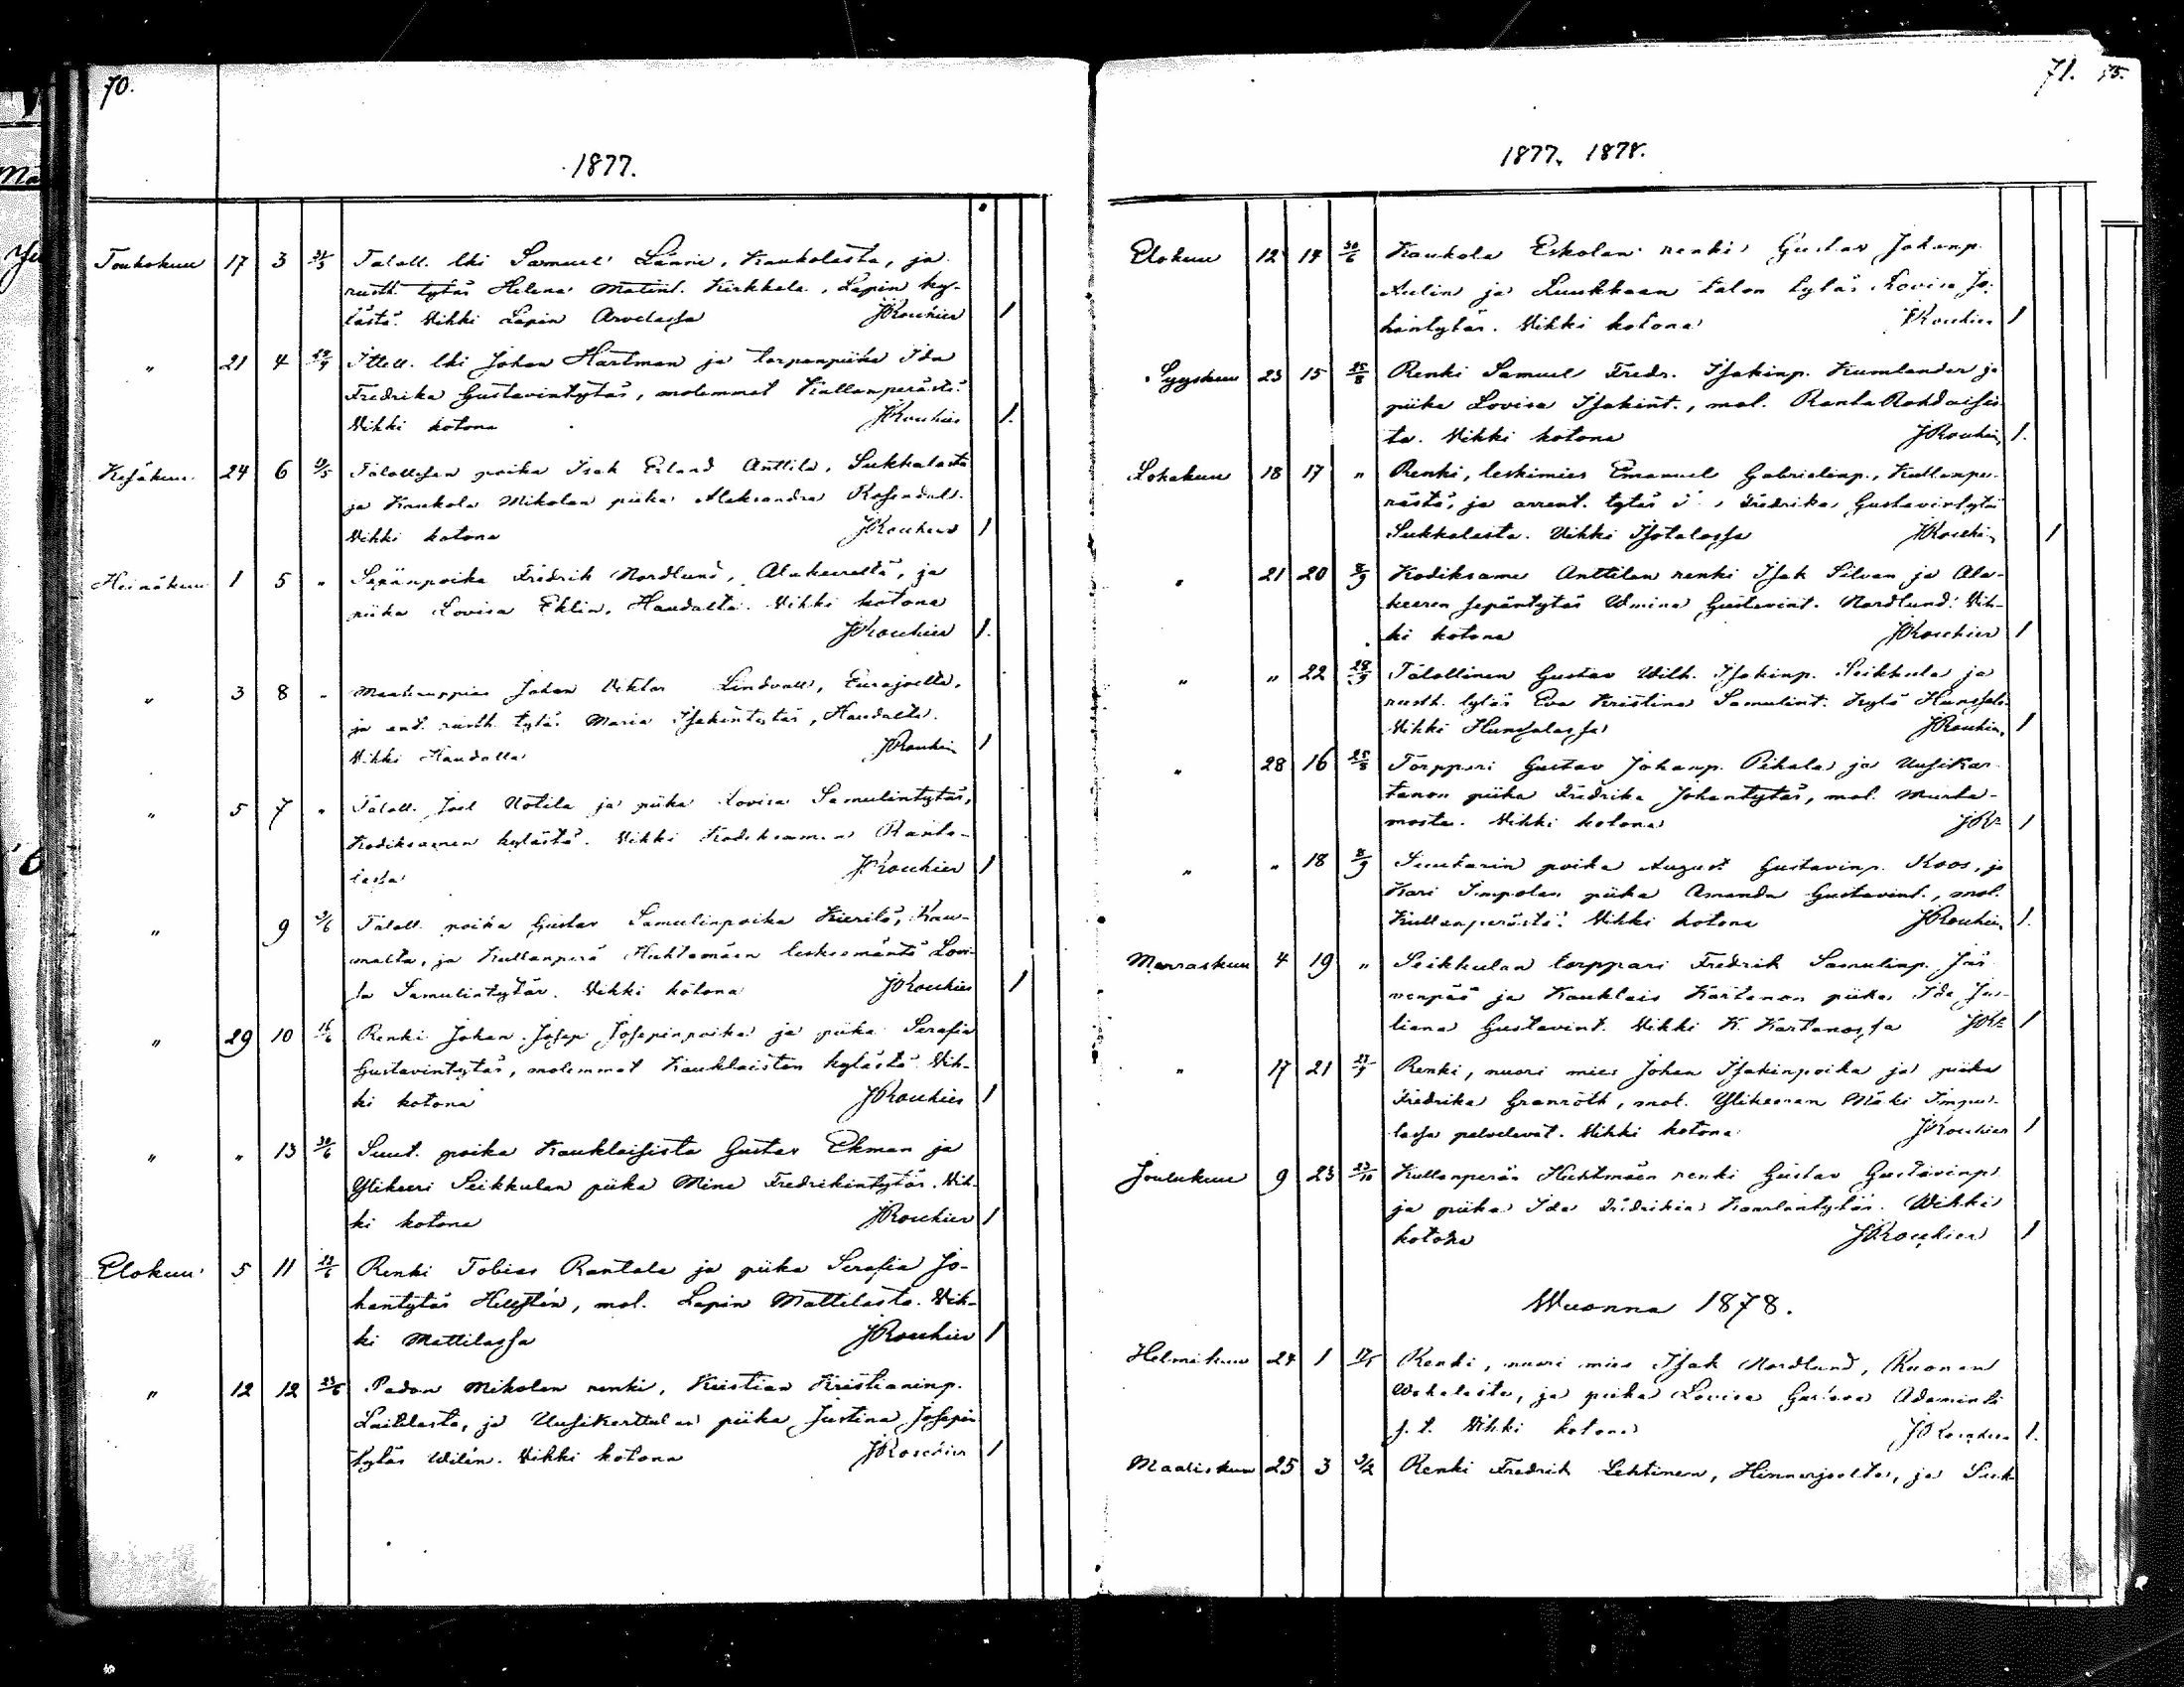 70.
1877.
Toukokuu 17 3 Taloll. lki Samuel Länsi, Kaukolasta, ja
rusth. tytär Helena Matint. Kirkkala, Lapin ky-
lästä. Vihki Lapin Arvelassa JRoschier 1
" 21 4 Ittell. lki Johan Hartman ja torpanpiika Ida
Fredrika Gustavintytär, molemmat Kullanperästä.
Vihki kotona JRoschier 1.
Kesäkuu 24 6 Talollisen poika Isak Erland Anttila, Sukkalasta
ja Kaukola Mikolan piika Aleksandra Rosendal.
Vihki kotona JRoschier 1
Heinäkuu 1 5 " Sepänpoika Fredrik Nordlund, Alakeerelta, ja
piika Lovisa Eklin, Haudalta. Vihki kotona
JRoschier 1.
" 3 8 " Maakauppias Johan Viktor Lindvall, Eurajoelta,
ja ent. rusth. tytär Maria Isakintytär, Haudalta.
Vihki Haudalla JRoschier 1
" 5 7 " Taloll. Joel Uotila ja piika Lovisa Samulintytär,
Kodiksamen kylästä. Vihki Kodiksamen Ranta-
lassa JRoschier 1
" 9 3/6 Taloll. poika Gustav Samulinpoika Kierilä, Kau-
malta, ja Kullanperä Huhtamäen leskiemäntä Lovi-
sa Samulintytär. Vihki kotona JRoschier 1
" 29 10 16/6 Renki Johan Josep Josepinpoika ja piika Serafia
Gustavintytär, molemmat Kauklaisten kylästä. Vih-
ki kotona JRoschier 1
" " 13 30/6 Suut. poika Kauklaisista Gustav Ekman ja
Ylikeeri Seikkulan piika Mina Fredrikintytär. Vih-
ki kotona JRoschier 1
Elokuu 5 11 Renki Tobias Rantala ja piika Serafia Jo-
hantytär Hellstén, mol. Lapin Mattilasta. Vih-
ki Mattilassa JRoschier 1
" 12 12 23/6 Padon Mikolan renki, Kristian Kristianinp.
Laitilasta, ja Uusikarttulan piika Justina Josepin
tytär Wilén. Vihki kotona JRoschier 1
71. 75.
1877, 1878.
Elokuu 12 14 30/6 Kaukola Eskolan renki Gustav Johanp.
Aulin ja Luukkaan talon tytär Lovisa Jo-
hantytär. Vihki kotona JRoschier 1
Syyskuu 23 15 25/8 Renki Samuel Fredr. Isakinp. Kumlander ja
piika Lovisa Isakint., mol. Ranta Rohdaisis-
ta. Vihki kotona JRoschier 1.
Lokakuu 18 17 " Renki, leskimies Emanuel Gabrielinp., Kullanpe-
rästä, ja arrent. tytär Fredrika Gustavintytär
Sukkalasta. Vihki Isotalossa JRoschier 1
" 21 20 8/9 Kodiksame Anttilan renki Isak Silvan ja Ala-
keeren sepäntytär Wmina Gustavint. Nordlund. Vih-
ki kotona JRoschier 1
" " 22 29/9 Talollinen Gustav Wilh. Isakinp. Seikkula ja
rusth. tytär Eva Kristina Samulint. Kylä Hunssala
Vihki Hunsalassa JRoschier 1
" 28 16 25/8 Torppari Gustav Johanp. Pihala ja Uusikar-
tanon piika Fredrika Johantytär, mol. Murta-
mosta. Vihki kotona JRr 1
" " 18 8/9 Suutarin poika August Gustavinp. Koos, ja
Kari Impolan piika Amanda Gustavint., mol.
Kullanperästä. Vihki kotona JRoschier 1.
Marraskuu 4 19 " Seikkulan torppari Fredrik Samulinp. Jär-
venpää ja Kauklais Kartanon piika Ida Ju-
liana Gustavint. Vihki K. Kartanossa JRr 1
" 17 21 Renki, nuori mies Johan Isakinpoika ja piika
Fredrika Granroth, mol. Ylikeeran Mäki Impo-
lassa palvelevat. Vihki kotona JRoschier 1
Joulukuu 9 23 Kullanperän Huhtmäen renki Gustav Gustavinp.
ja piika Ida Fredrikia Kaarlentytär. Wihki
kotona JRoschier 1
Wuonna 1878.
Helmikuu 24 1 Renki, nuori mies Isak Nordlund, Kuonan
ja piika Lovisa Gustava Adamint.
Vihki kotona JRoschier 1.
Maaliskuu 25 3 Renki Fredrik Lehtinen, Hinnerjoelta, ja Suk-